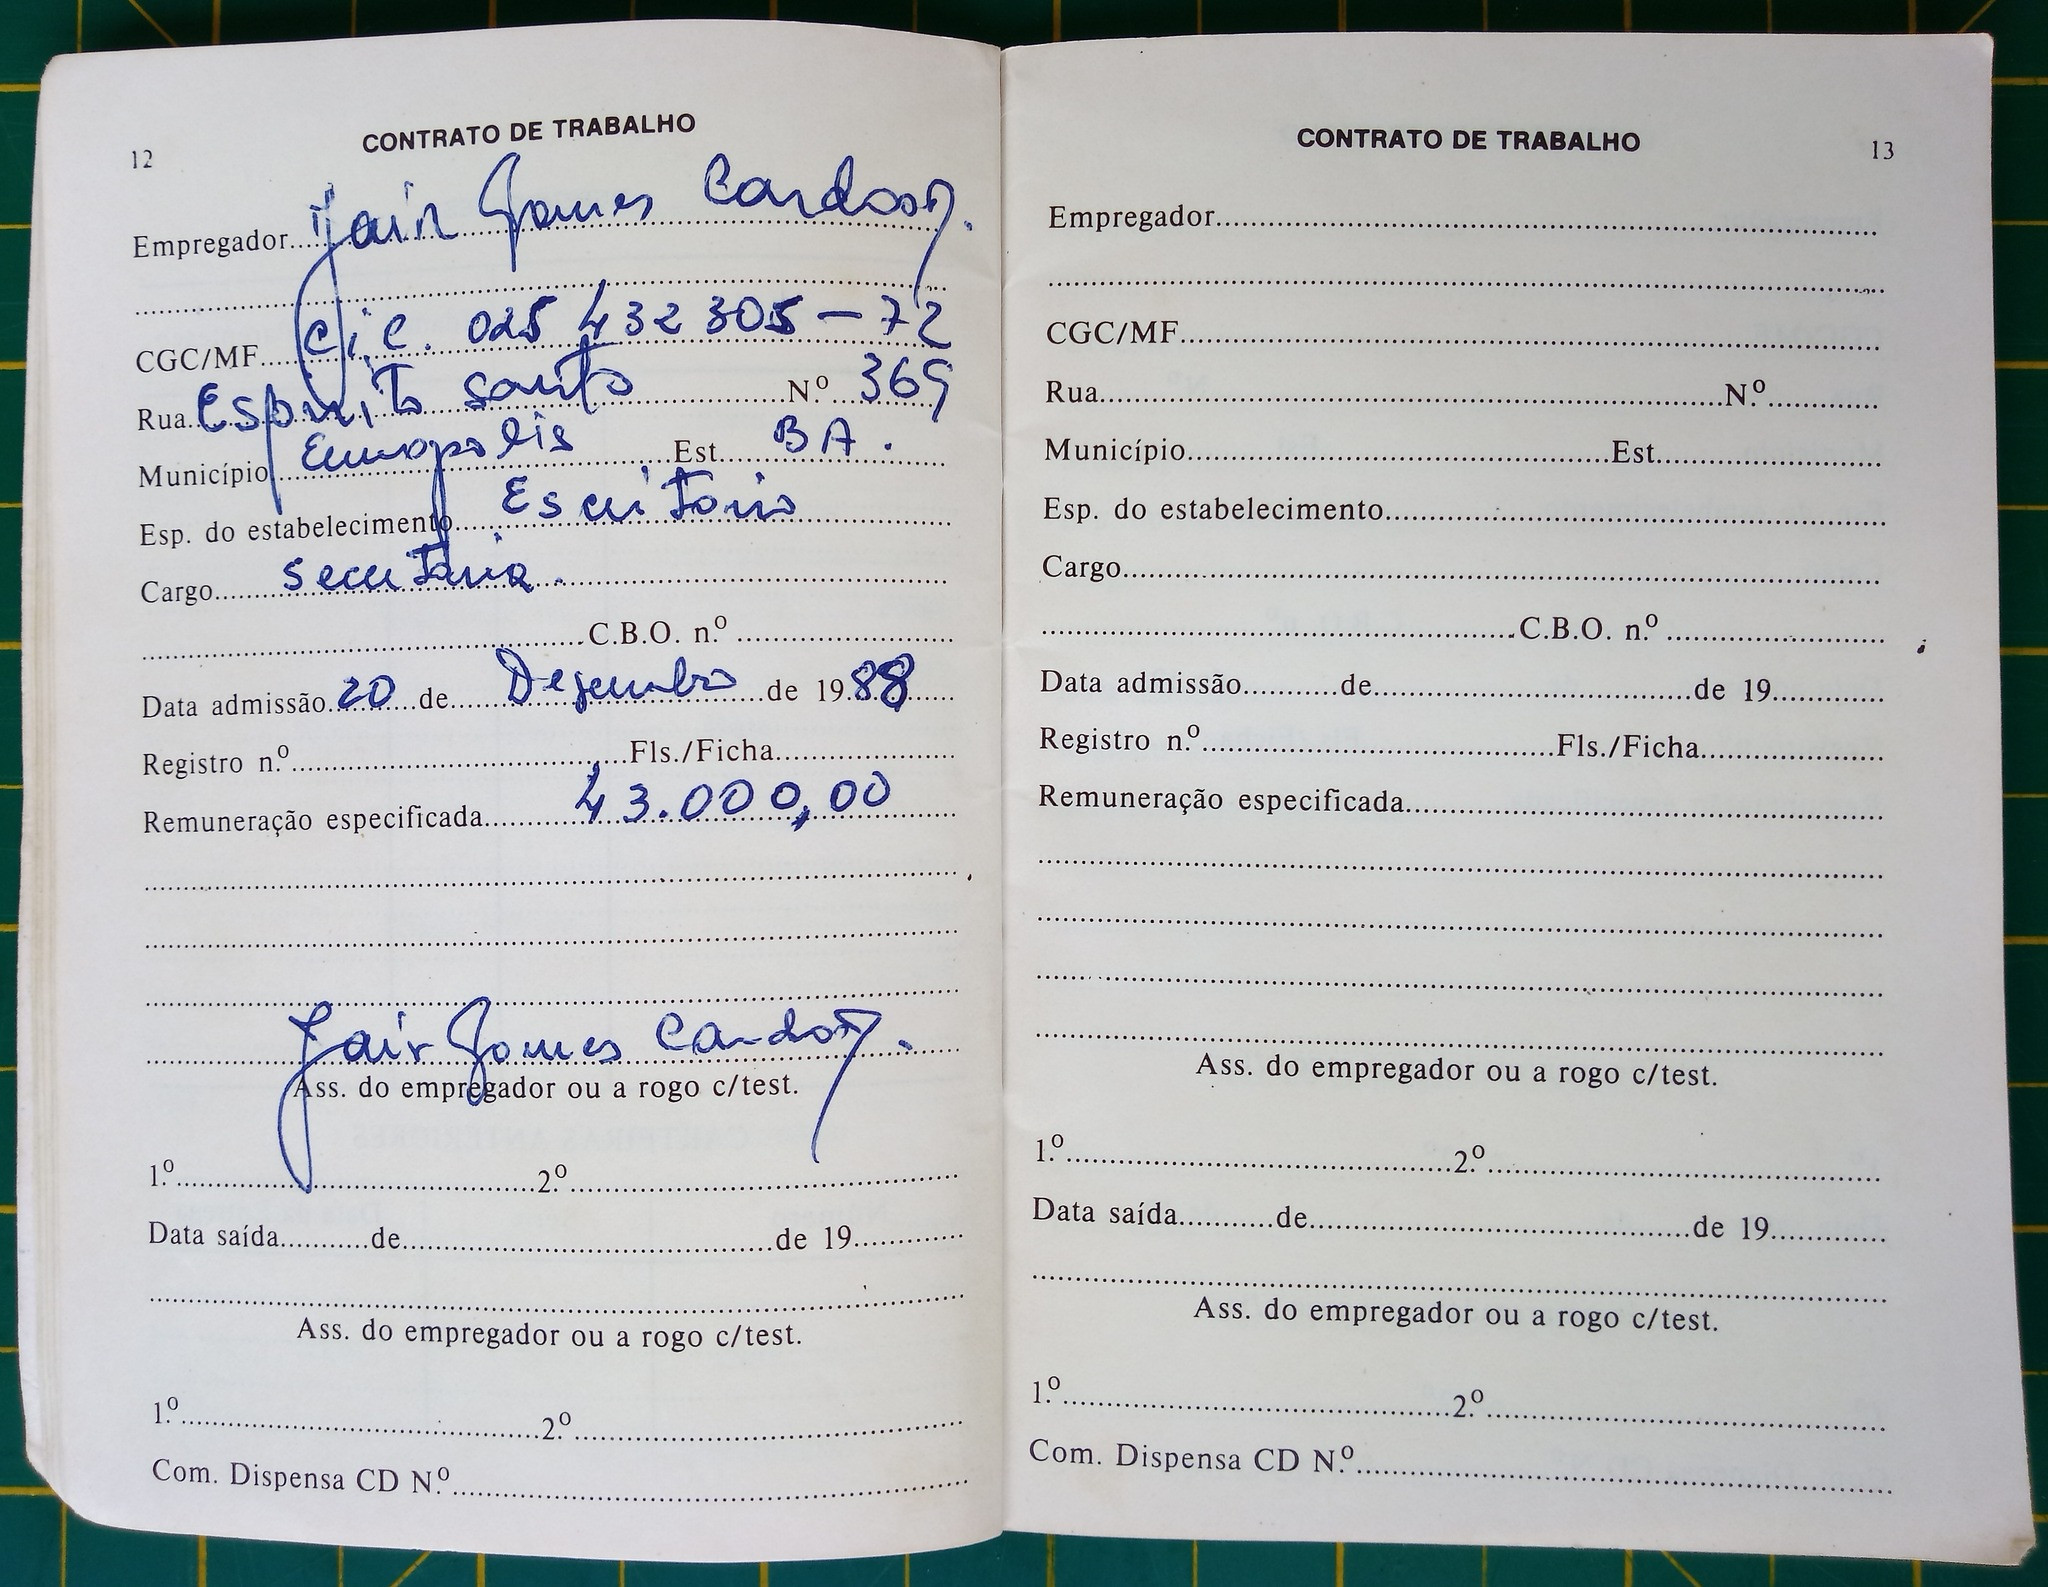 12
CONTRATO DE TRABALHO
Empregador Jair Gomes Cardoso.
CGC/MF Cic. 025 432 305-72
Rua Espirito santo Nº 369
Município Eunapolis Est. BA.
Esp. do estabelecimento Escritorio
Cargo secretaria.
C.B.O. n.º
Data admissão 20 de Dezembro de 1988
Registro n.º Fls./Ficha
Remuneração especificada 43.000,00
Jair Gomes Cardoso.
Ass. do empregador ou a rogo c/test.
1.º 2.º
Data saída de de 19
Ass. do empregador ou a rogo c/test.
1.º 2.º
Com. Dispensa CD N.º
CONTRATO DE TRABALHO
13
Empregador
CGC/MF
Rua N.º
Município Est.
Esp. do estabelecimento
Cargo
C.B.O. n.º
Data admissão de de 19
Registro n.º Fls./Ficha
Remuneração especificada
Ass. do empregador ou a rogo c/test.
1.º 2.º
Data saída de de 19
Ass. do empregador ou a rogo c/test.
1.º 2.º
Com. Dispensa CD N.º